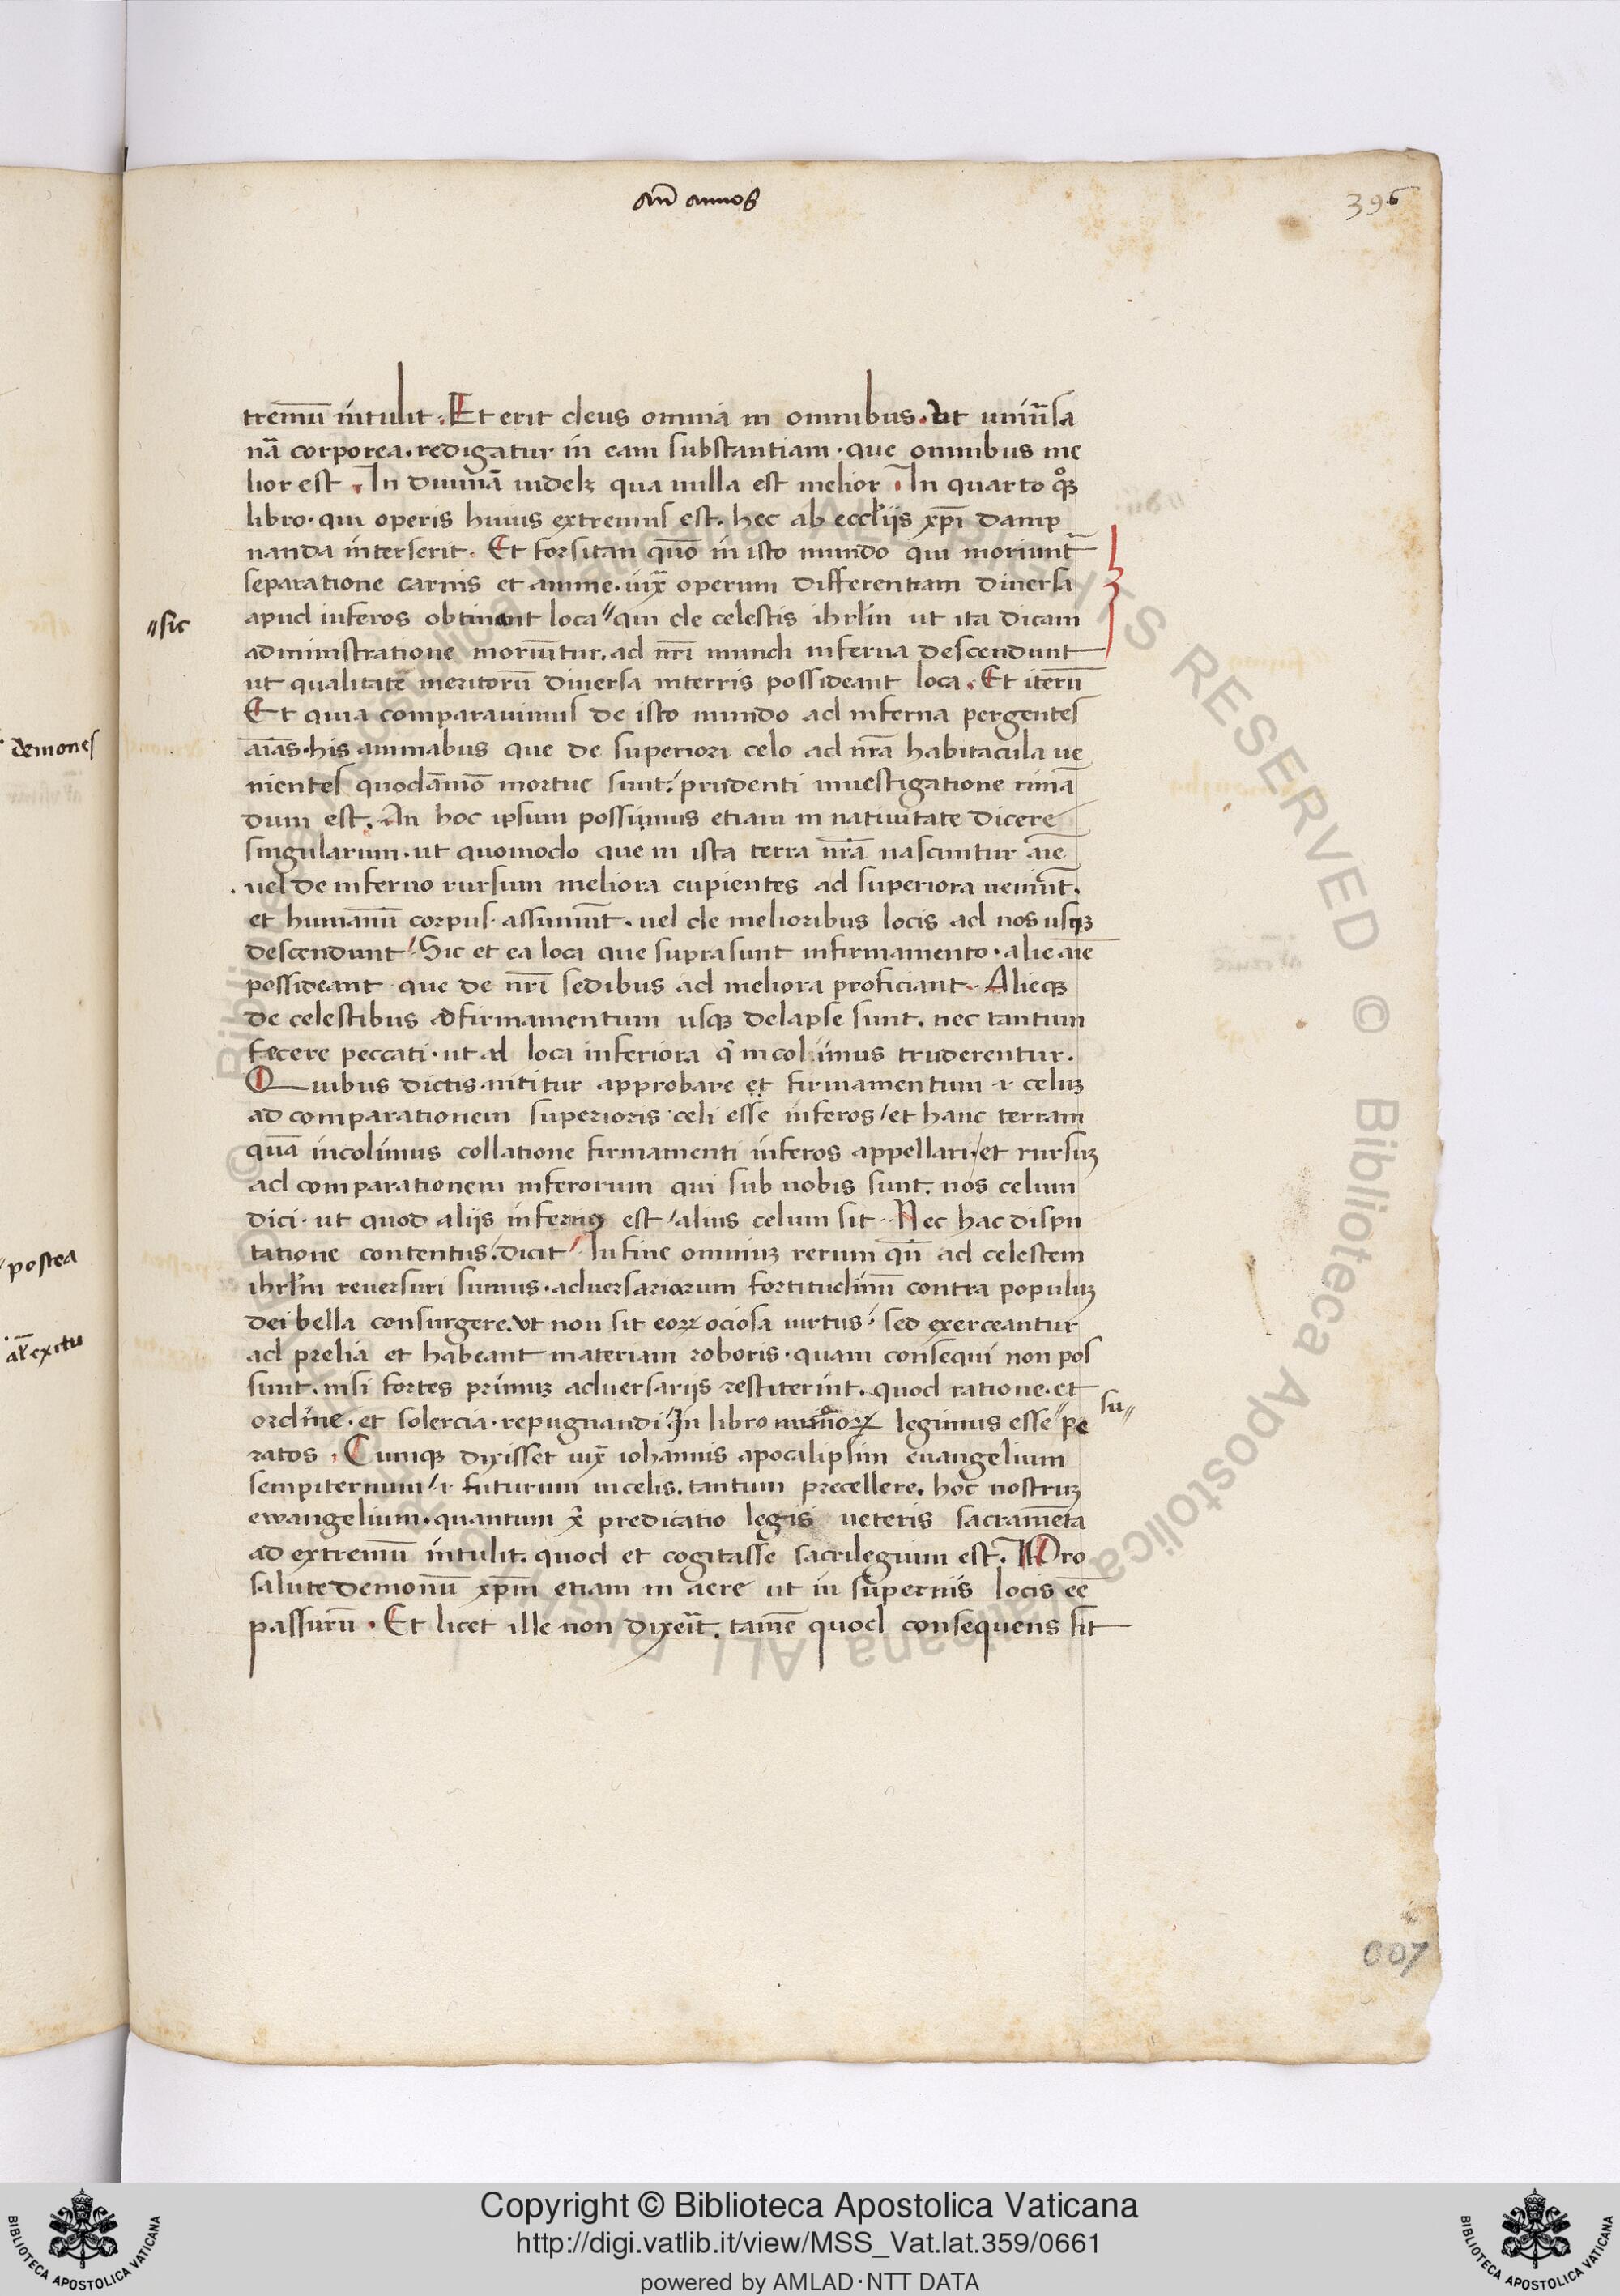 añ annos
396
tremū intulit. Et erit deus omnia in omnibus. ut uniūsa
nã corporea. redigatur in eam substantiam. que omnibus me
lior est. In diuinã uidelꝫ qua nulla est melior In quarto qͦꝫ
libro. qui operis huius extremus est. hec ab eccl̄ijs xp̄i damp
nanda interserit. Et forsitan quō in isto mundo qui moriunt᷑
separatione carnis et anime. iux̄ operum differentiam diuersa
"sic
apud inferos obtinent loca" qui de celestis ihrl̄m ut ita dicam
administratione moriūtur. ad nr̄i mundi inferna descendunt
ut qualitatē meritorū diuersa interris possideant loca. Et iterū
Et quia comparauimus de isto mundo ad inferna pergentes
demones
aīas. his animabus que de superiori celo ad nr̄a habitacula ue
nientes quodāmō mortue sunt. prudenti inuestigatione rimā
dum est. An hoc ipsum possumus etiam in natiuitate dicere
singularum. ut quomodo que in ista terra nr̄a nascuntur aīe
uel de inferno rursum meliora cupientes ad superiora ueniūt.
et humanū corpus assumūt. uel de melioribus locis ad nos usqꝫ
descendunt. Sic et ea loca que supra sunt infirmamento. alie aīe
possideant que de nr̄i sedibus ad meliora proficiant. Alieqꝫ
de celestibus adfirmamentum usqꝫ delapse sunt. nec tantum
fecere peccati. ut ad loca inferiora q̄ incolimus truderentur.
Quibus dictis. nititur approbare et firmamentum .i. celuꝫ
ad comparationem superioris celi esse inferos / et hanc terram
quā incolimus collatione firmamenti inferos appellari. et rursuꝫ
ad comparationem inferorum qui sub nobis sunt. nos celum
dici. ut quod alijs infernus est / alius celum sit. Nec hac dispu
"postea
tatione contentus. dicit / In fine omniuꝫ rerum qn̄ ad celestem
ihrl̄m reuersuri sumus. aduersariorum fortitudinū contra populuꝫ
dei bella consurgere. ut non sit eoꝝ ociosa uirtus. sed exerceantur
al̄ exitu
ad prelia et habeant materiam roboris. quam consequi non pos
sunt. nisi fortes primuꝫ aduersarijs restiterint. quod ratione. et
ordine. et solercia. repugnandi. In libro numoꝝ legimus esse" pe su"
ratos. Cumqꝫ dixisset iux̄ iohannis apocalipsim euangelium
sempiternum / .i. futurum incelis. tantum precellere. hoc nostruꝫ
ewangelium. quantum x̄ predicatio legis ueteris sacramēta
ad extremū intulit. quod et cogitasse sacrilegium est. Pro
salute demonū xp̄m etiam in aere ut in supernis locis eē
passurū. Et licet ille non dixeīt. tamē quod consequens sit
007
Copyright © Biblioteca Apostolica Vaticana
http://digi.vatlib.it/view/MSS_Vat.lat.359/0661
powered by AMLAD·NTT DATA